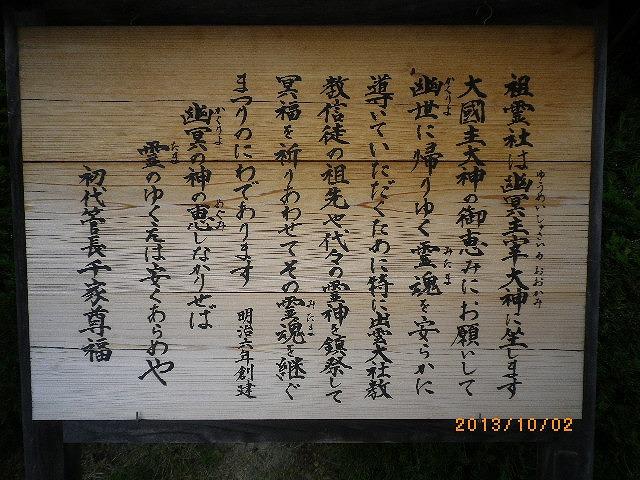 祖霊社は幽冥主宰大神に坐します
大國主大神の御恵みにお願いして
幽世に帰りゆく霊魂を安らかに
導いていただくために特に出雲大社教
教信徒の祖先や代々の霊神を鎮祭して
冥福を祈りあわせてその霊魂を継ぐ
まつりのにわであります 明治六年創建
幽冥の神の恵しなかりせば
霊のゆくえは安くあらめや
初代管長千家尊福
2013/10/02